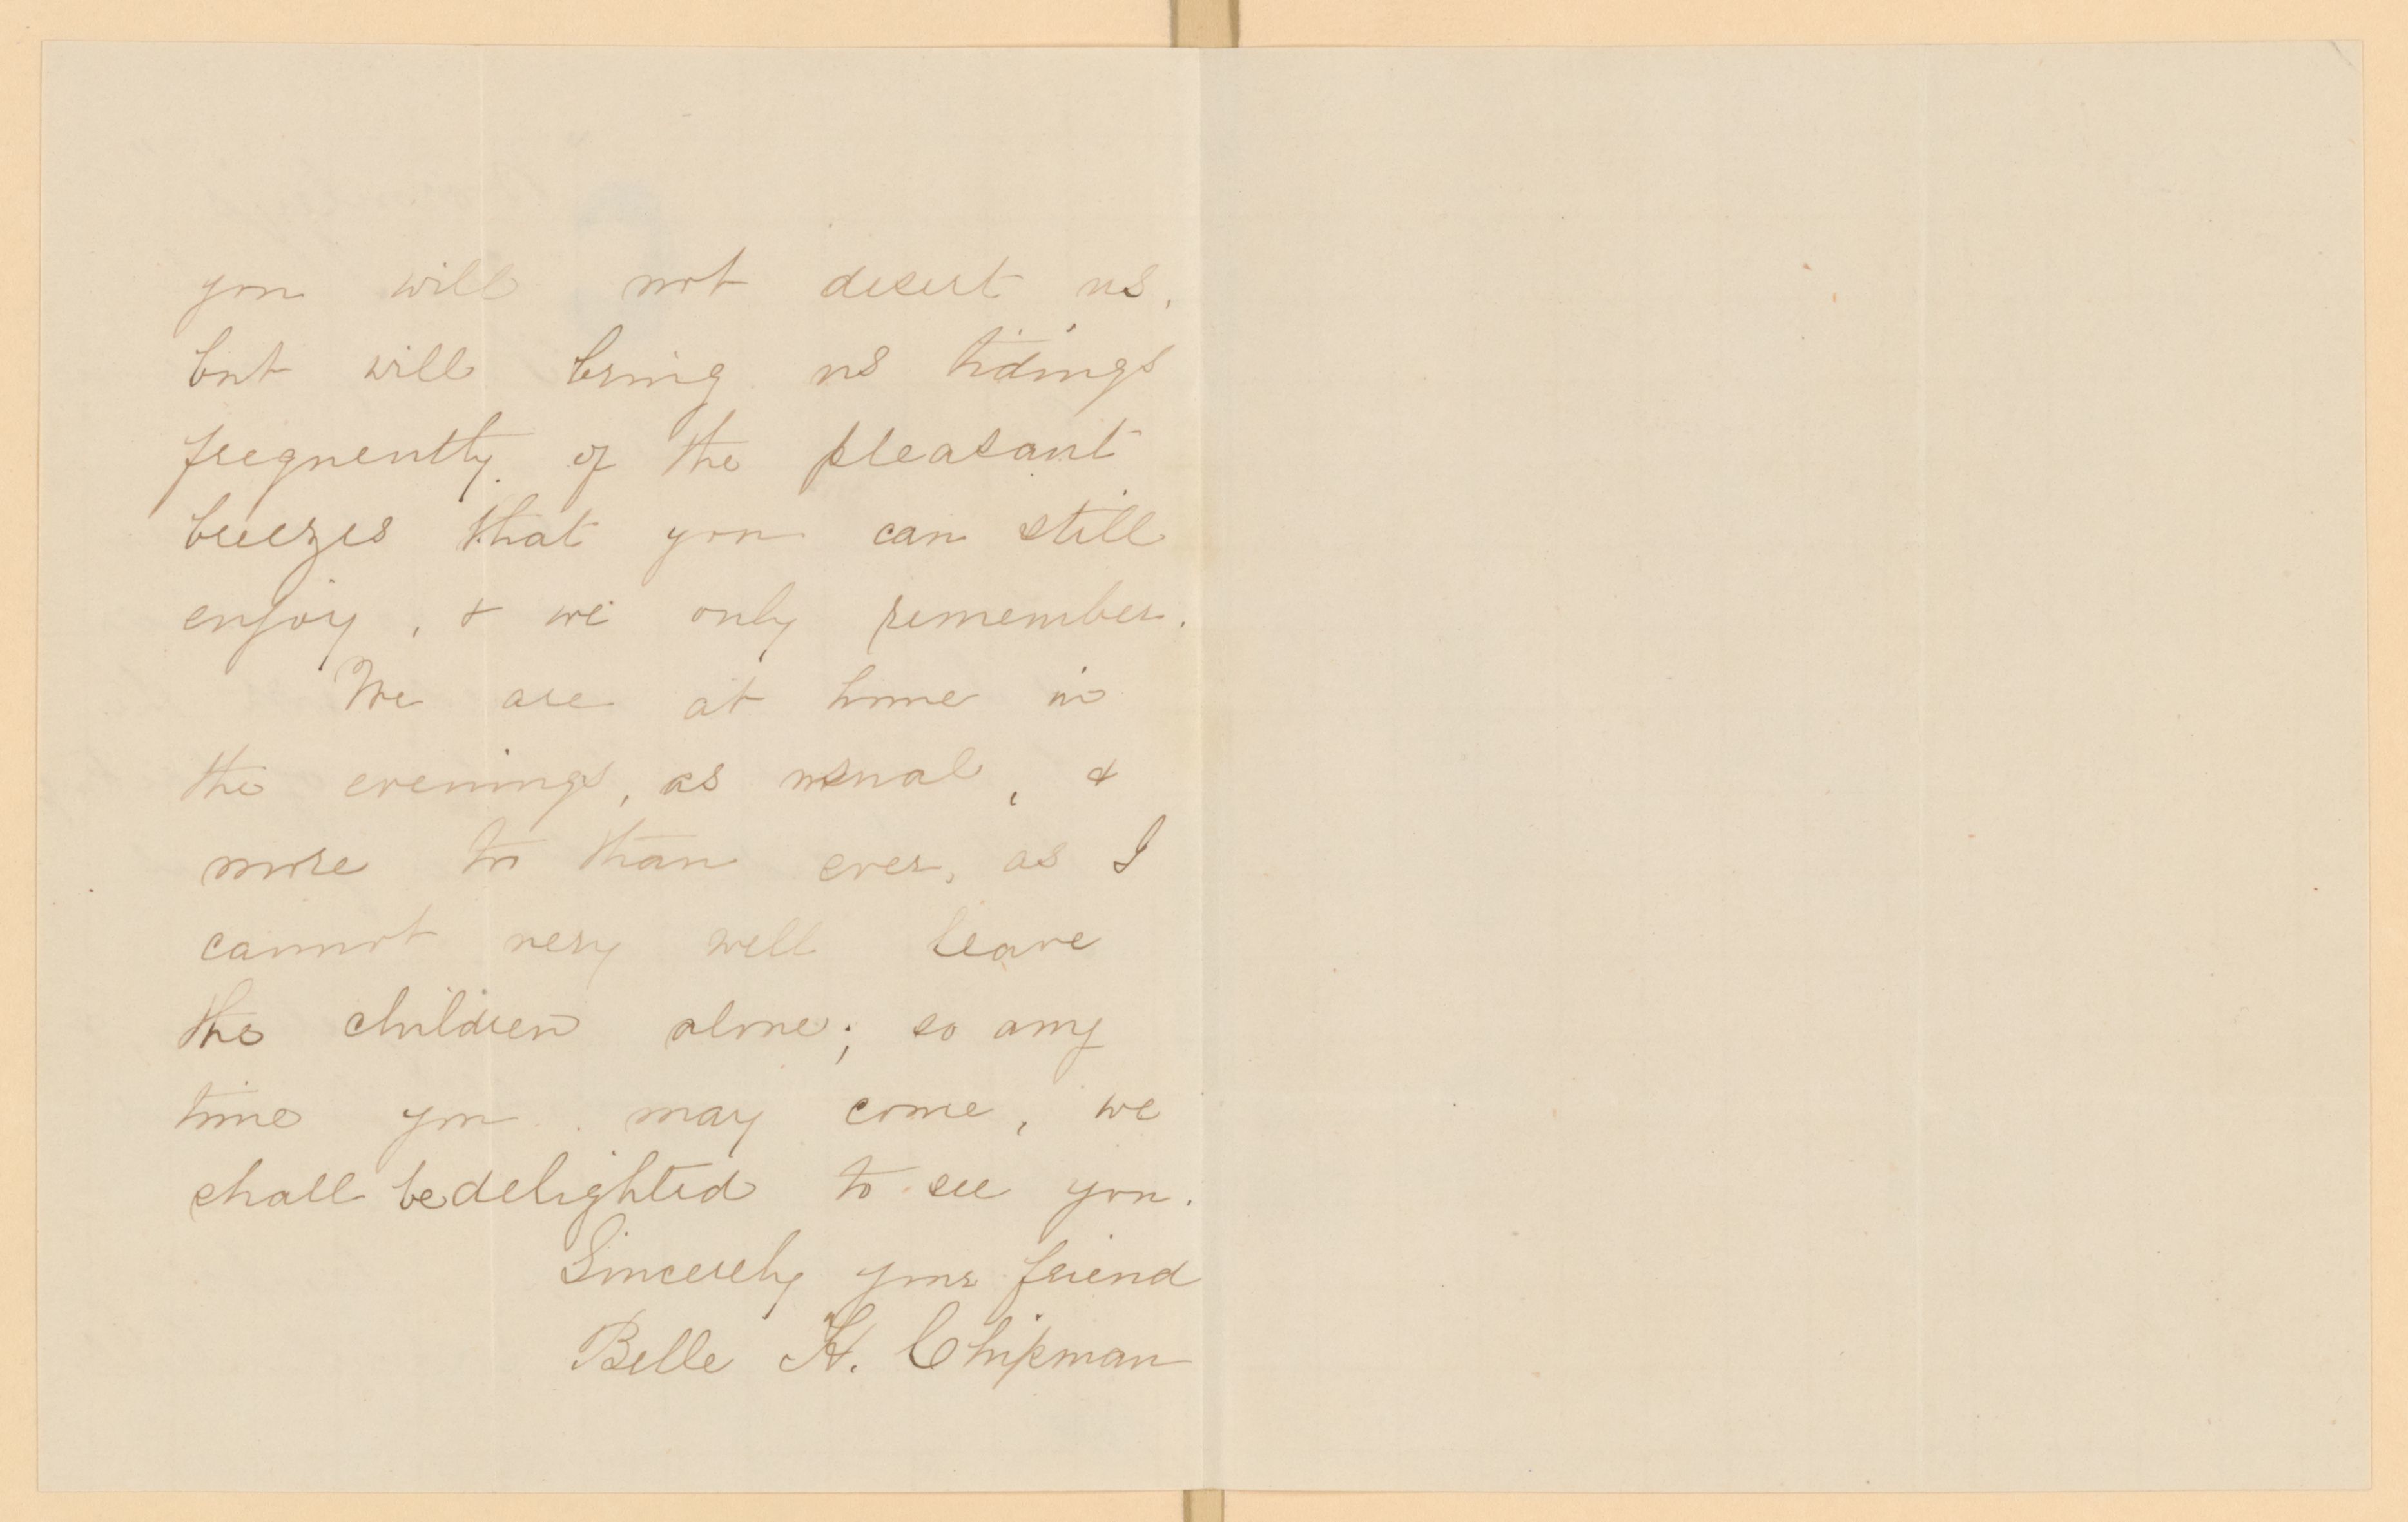 you will not desert us,
but will bring us tidings
frequently of the pleasant
breezes that you can still
enjoy, & we only remember.
We are at home in
the evenings, as usual, &
more so than ever, as I
cannot very well leave
the children alone; so any
time you may come, we
shall be delighted to see you.
Sincerely your friend
Belle H. Chipman